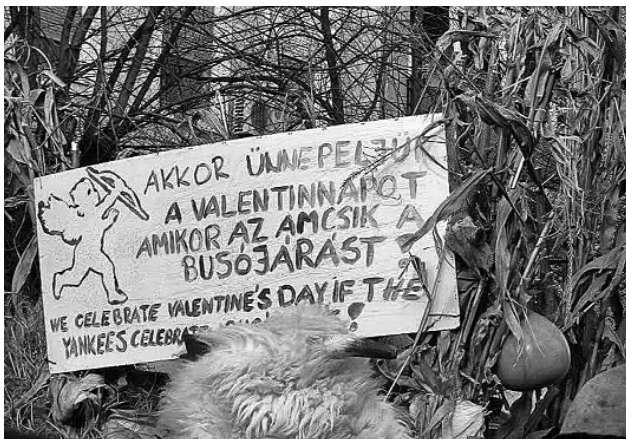 AKKOR ÜNNEPELJÜK
A VALENTINNAPOT
AMIKOR AZ AMCSIK A
BUSÓJÁRÁST
WE CELEBRATE VALENTINE'S DAY IF THE
YANKEES CELEBRATE